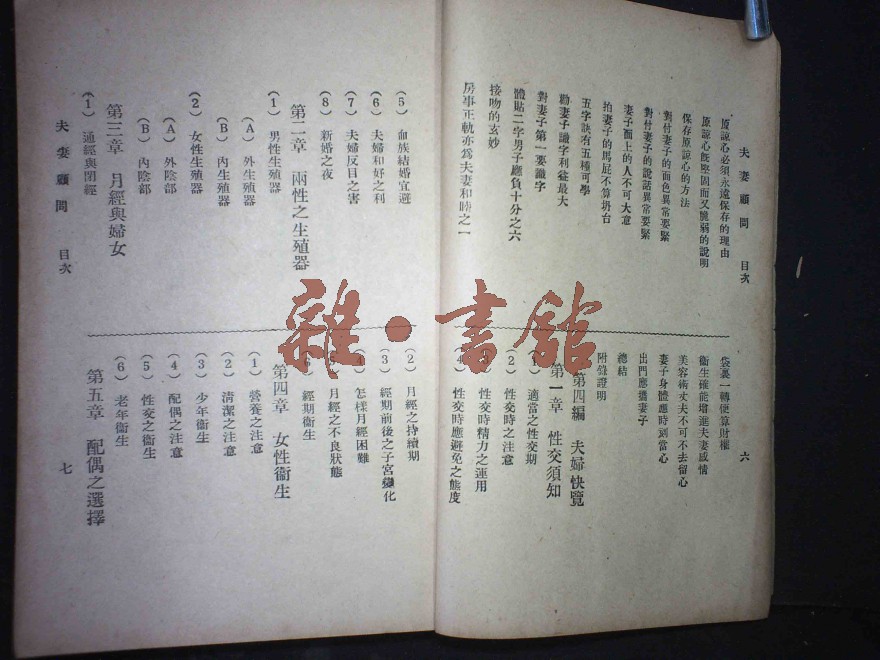 夫妻顧問 目次
原諒心必須永遠保存的理由
原諒心既堅固而又脆弱的說明
保存原諒心的方法
對付妻子的面色異常要緊
對付妻子的說話異常要緊
妻子面上的人不可大意
拍妻子的馬屁不算坍台
五字訣有五種可學
勸妻子識字利益最大
對妻子第一要識字
體貼二字男子應負十分之六
接吻的玄妙
房事正軌亦爲夫妻和睦之一
袋裏一轉便算財權
衞生確能增進夫妻感情
美容術丈夫不可不去留心
妻子身體應時刻當心
出門應攜妻子
總結
附錄證明
第四編 夫婦快覽
第一章 性交須知
(1) 適當之性交期
(2) 性交時之注意
性交時精力之運用
性交時應避免之態度
六
(5) 血族結婚宜避
(6) 夫婦和好之利
(7) 夫婦反目之害
(8) 新婚之夜
第二章 兩性之生殖器
(1) 男性生殖器
(A) 外生殖器
(B) 內生殖器
(2) 女性生殖器
(A) 外陰部
(B) 內陰部
第三章 月經與婦女
(1) 通經與閉經
夫妻顧問 目次
(2) 月經之持續期
(3) 經期前後之子宮變化
怎樣月經困難
月經之不良狀態
經期衞生
第四章 女性衞生
(1) 營養之注意
(2) 清潔之注意
(3) 少年衞生
(4) 配偶之注意
(5) 性交之衞生
(6) 老年衞生
第五章 配偶之選擇
七
雜·書館